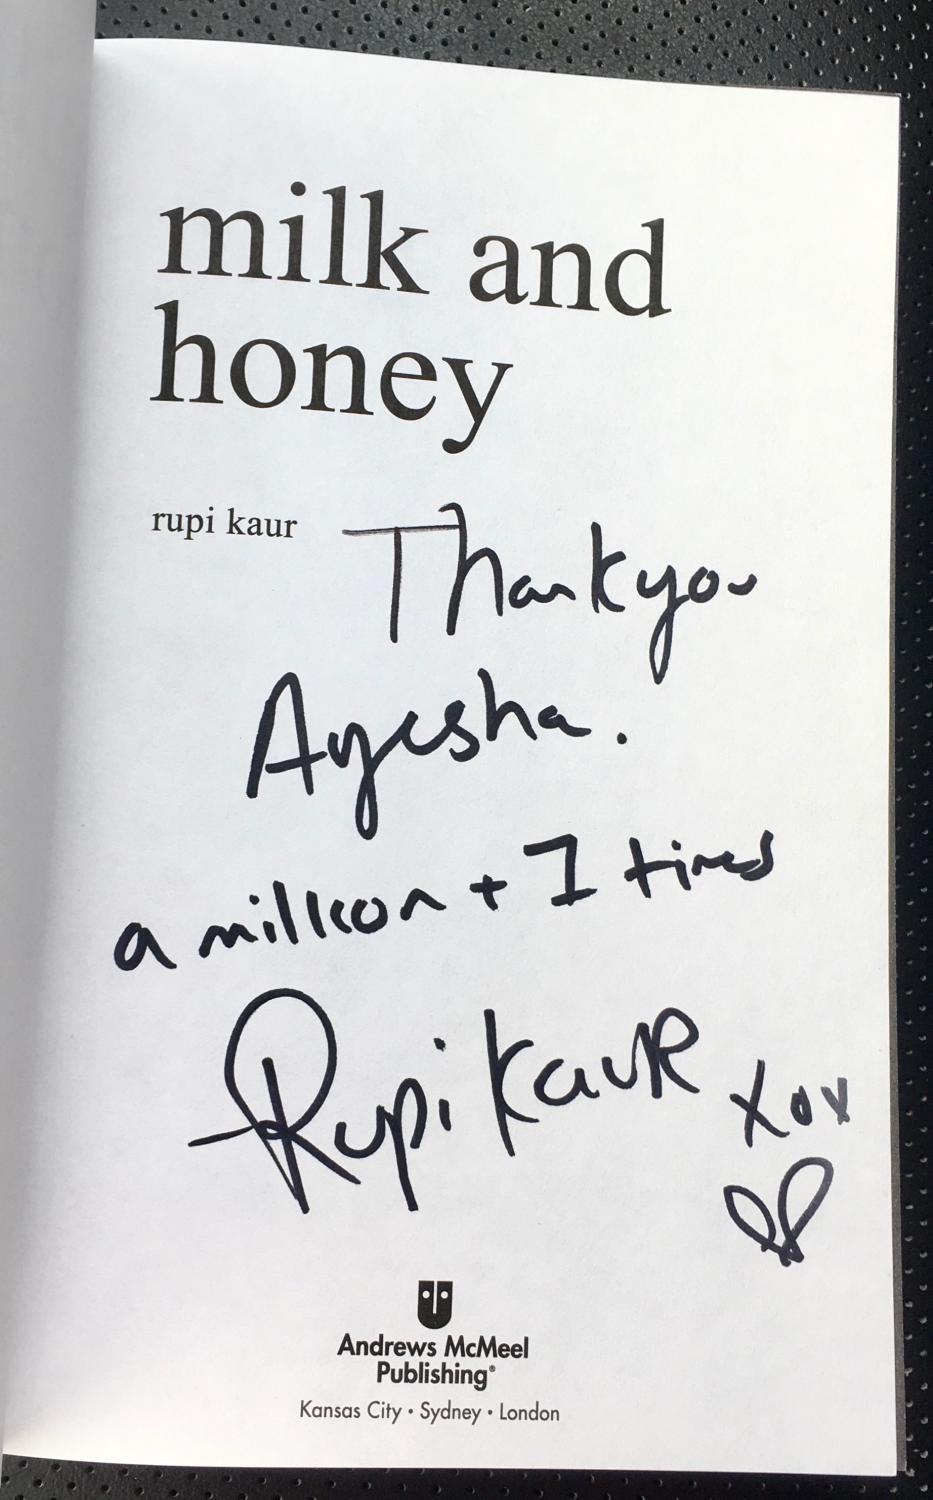 milk and
honey
rupi kaur
Thank you
Ayesha.
a million + 1 times
Rupi Kaur
xox
Andrews McMeel
Publishing®
Kansas City • Sydney • London